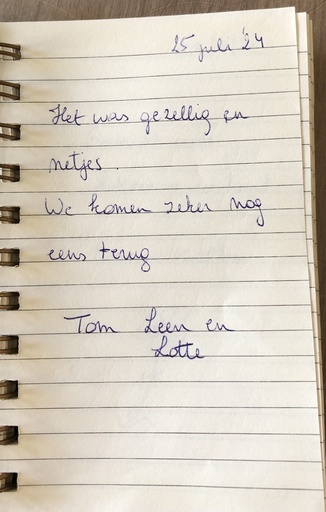 25 juli '24
Het was gezellig en
netjes.
We komen zeker nog
eens terug
Tom Leen en
Lotte